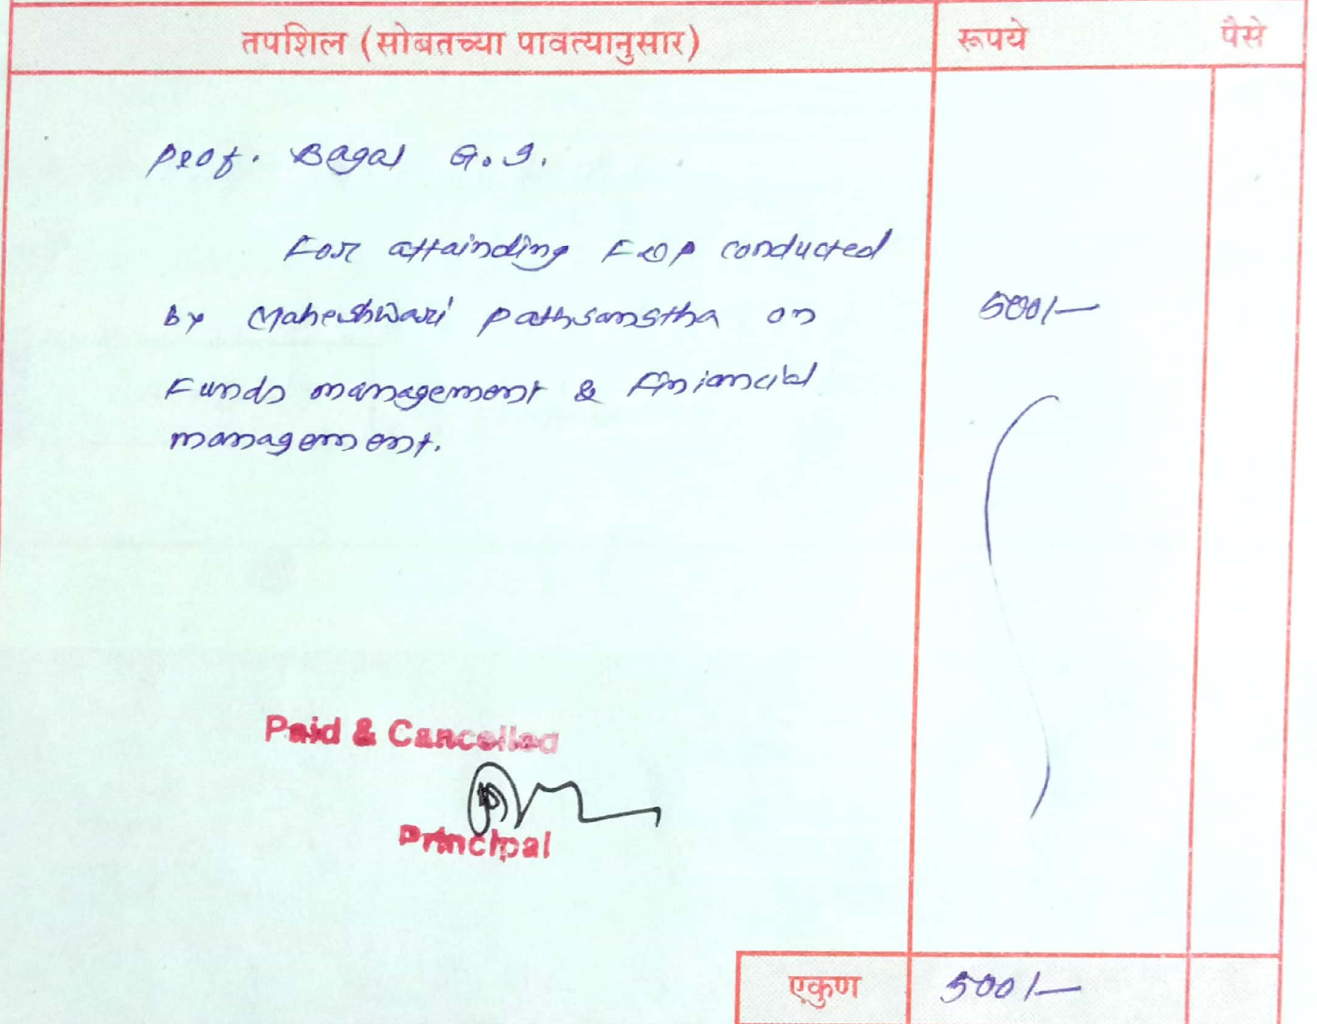 तपशिल (सोबतच्या पावत्यानुसार) रूपये पैसे
Prof. Bagal G. I.
For attainding FDP conducted
by Maheshwari pathsanstha on 500/-
Funds management & finiancial
management.
Paid & Cancelled
Principal
एकुण 500/-